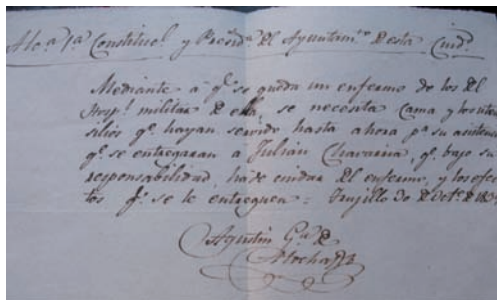 Constitucl. y Presid.te Dl Ayuntam.to D esta Ciud.
Mediante a q.e se queda un enfermo de los Dl
Hosp.l militar D ella, se necesita Cama y los uten
silios q.e hayan servido hasta ahora pa su asistencia
q.e se entregaran a Julian q.e bajo su
responsabilidad, ha de cuidar Dl enfermo, y los efec
tos q.e se le entreguen = Trujillo 30 D Oct.e D
Agustin G.a D
Atocha